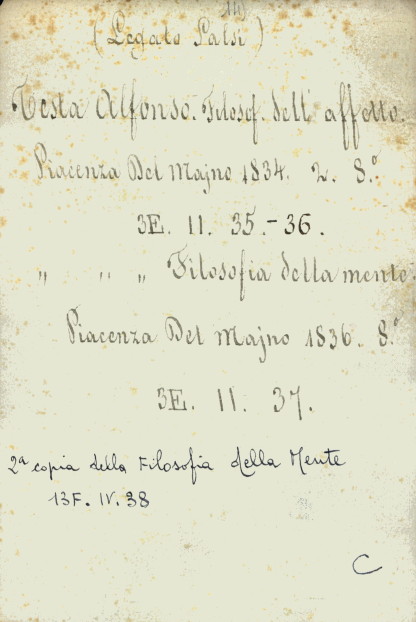 (Legato Palsi)
Testa Alfonso. Filosof. dell' affetto.
Piacenza Del Majno 1834. 2. 8.°
3E. II. 35.-36.
" " " Filosofia della mente.
Piacenza Del Majno 1836. 8.°
3E. II. 37.
2ª copia della Filosofia della Mente
13F. IV. 38
C